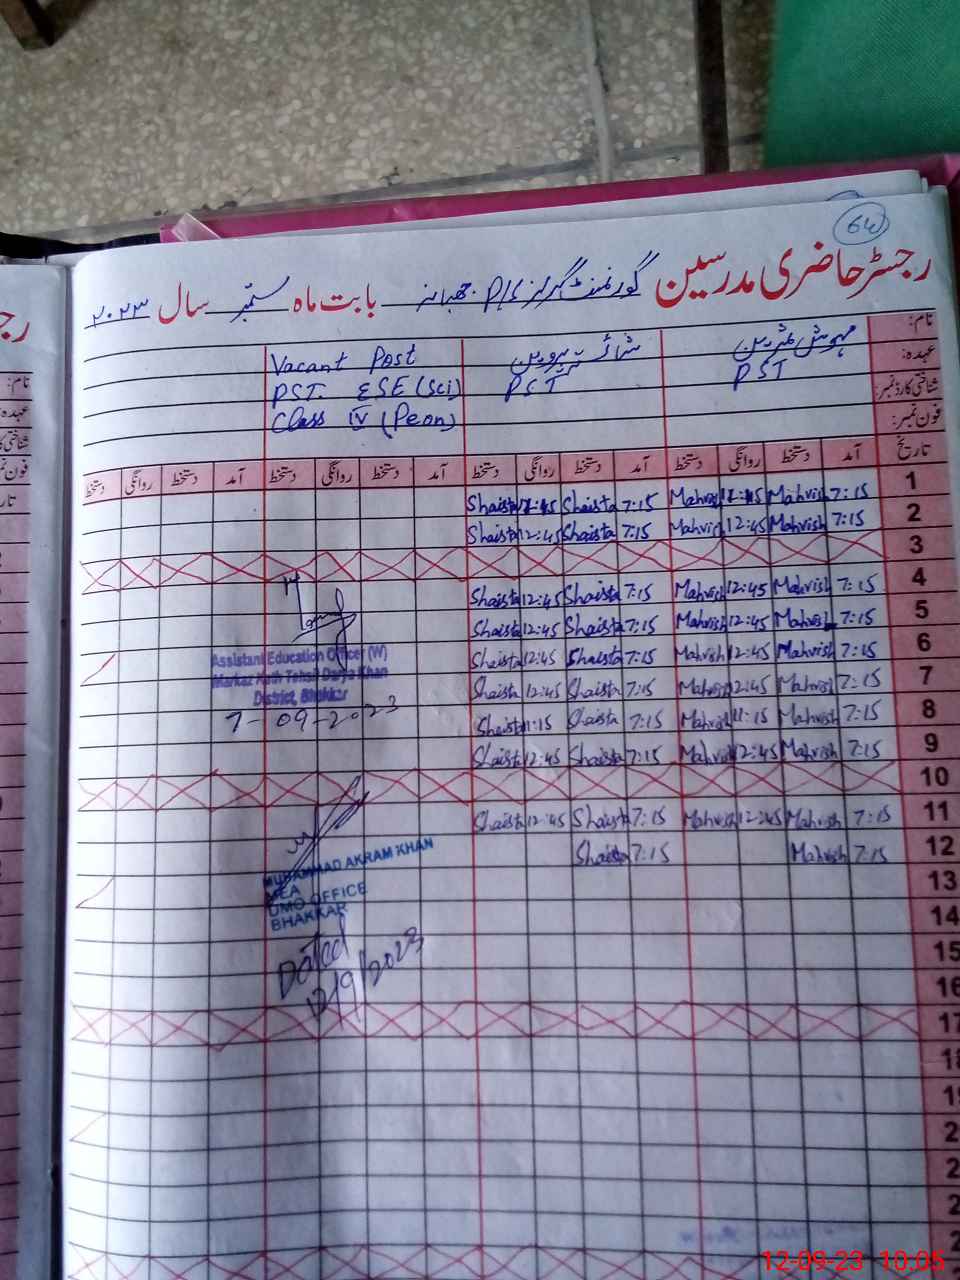 64
رجسٹر حاضری مدرسین گورنمنٹ گرلز P/S بابت ماہ ستمبر سال ۲۰۲۳
نام:
عہدہ:
شناختی کارڈ نمبر:
فون نمبر:
مہوش
PST
PST
Vacant Post
PST. ESE (Sci)
Class IV (Peon)
تاریخ آمد دستخط روانگی دستخط آمد دستخط روانگی دستخط آمد دستخط روانگی دستخط آمد دستخط روانگی دستخط
1 7:15 Mahvish 12:45 Mahvish 7:15 Shaista 12:45 Shaista
2 7:15 Mahvish 12:45 Mahvish 7:15 Shaista 12:45 Shaista
3
4 7:15 Mahvish 12:45 Mahvish 7:15 Shaista 12:45 Shaista
5 7:15 Mahvish 12:45 Mahvish 7:15 Shaista 12:45 Shaista
6 7:15 Mahvish 12:45 Mahvish 7:15 Shaista 12:45 Shaista
7 7:15 Mahvish 12:45 Mahvish 7:15 Shaista 12:45 Shaista
8 7:15 Mahvish 11:15 Mahvish 7:15 Shaista 11:15 Shaista
9 7:15 Mahvish 12:45 Mahvish 7:15 Shaista 12:45 Shaista
10
11 7:15 Mahvish 12:45 Mahvish 7:15 Shaista 12:45 Shaista
12 7:15 Mahvish 7:15 Shaista
13
14
15
16
17
18
Assistant Education Officer (W)
Markaz Tehsil Darya Khan
District, Bhakkar
7-09-2023
MUHAMMAD AKRAM KHAN
MEA
DMO OFFICE
BHAKKAR
Dated
12/9/2023
نام:
عہدہ:
12-09-23 10:05